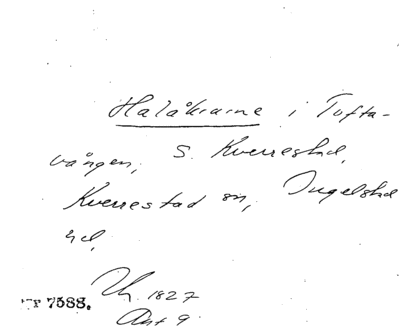 Halåkrarne i Tofta-
vången, S. Kverrestad,
Kverrestad sn, Ingelstad
hd,
Uh. 1827
Akt 9
7588.